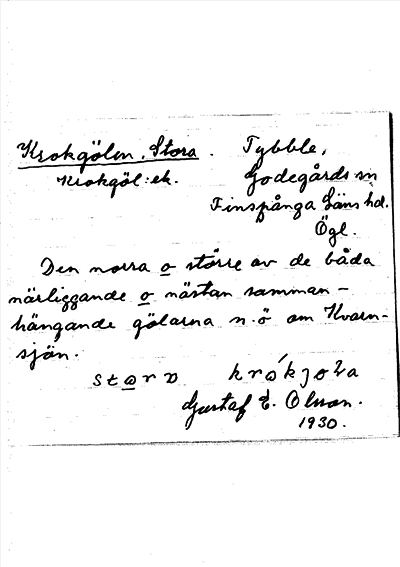 Krokgölen, Stora. Tybble,
Krokgöl: ek. Godegårds sn
Finspånga Läns hd.
Ögl.
Den norra o större av de båda
närliggande o nästan samman-
hängande gölarna n.ö om Kvarn-
sjön.
Gustaf E. Olsson.
1930.